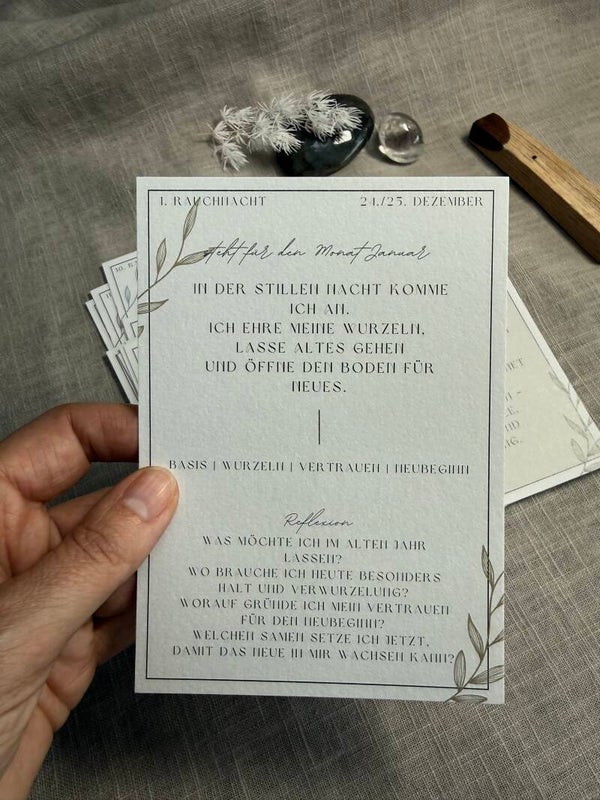 1. RAUCHNACHT 24./25. DEZEMBER
steht für den Monat Januar
IN DER STILLEN NACHT KOMME
ICH AN.
ICH EHRE MEINE WURZELN,
LASSE ALTES GEHEN
UND ÖFFNE DEN BODEN FÜR
NEUES.
BASIS | WURZELN | VERTRAUEN | NEUBEGINN
Reflexion
WAS MÖCHTE ICH IM ALTEN JAHR
LASSEN?
WO BRAUCHE ICH HEUTE BESONDERS
HALT UND VERWURZELUNG?
WORAUF GRÜNDE ICH MEIN VERTRAUEN
FÜR DEN NEUBEGINN?
WELCHEN SAMEN SETZE ICH JETZT,
DAMIT DAS NEUE IN MIR WACHSEN KANN?